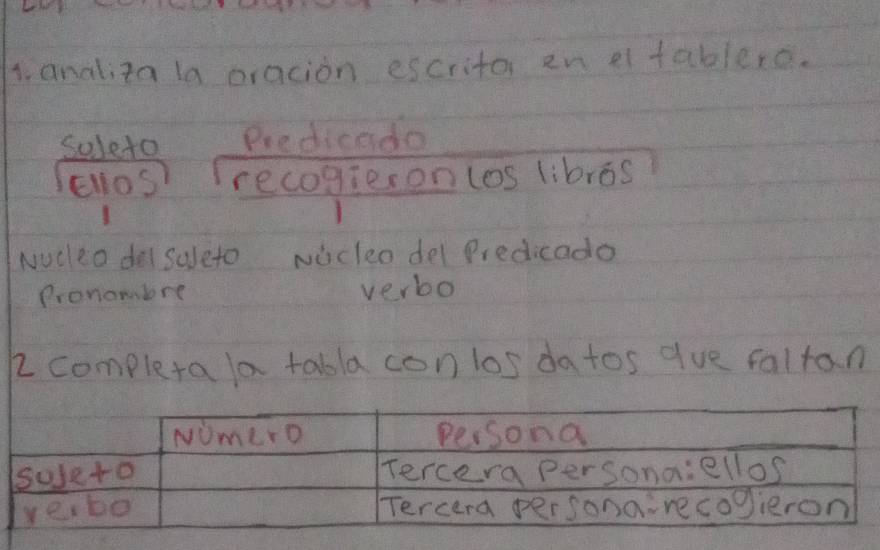 1. analiza la oración escrita en el tablero.
Sujeto Predicado
Ellos recogieron los libros
Nucleo del sujeto Núcleo del Predicado
Pronombre verbo
2 completa la tabla con los datos que faltan
Número Persona
Sujeto Tercera Persona: ellos
verbo Tercera persona: recogieron